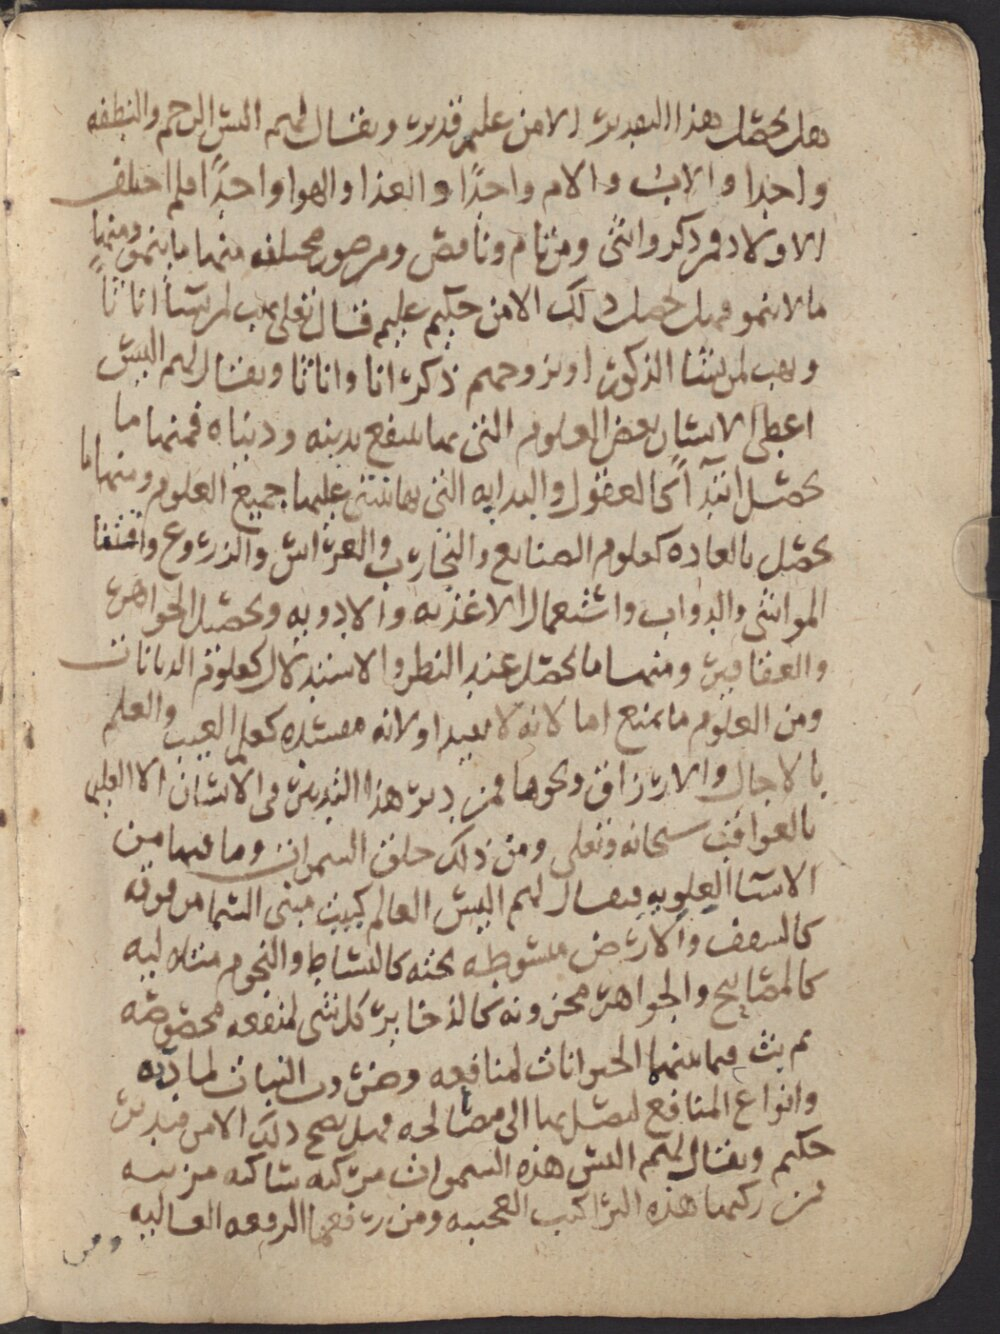 هل يحصل هذا التقدير الا من عليم قدير ويقال لهم اليس الرحم والنطفه
واحدا والاب والام واحدًا والغذا والهوا واحدًا فلم اختلف
الاولاد فمن ذكر وانثى ومن تام وناقص ومن صور مختلفه منها ما ينمو ومنها
ما لا ينمو فهل يحصل ذلك الا من حكيم عليم فقال تعلى يهب لمن يشآ اناثا
ويهب لمن يشا الذكور او يزوجهم ذكرانا واناثا ويقال لهم اليس
اعطى الانسان بعض العلوم التي بها ينتفع بدينه ودنياه فمنها ما
يحصل ابتدآ كالعقول والبدايه التي بها يبتنى عليها جميع العلوم ومنها ما
يحصل بالعاده كعلوم الصنايع والتجارب والغراس والزروع واقتنا
المواشي والدواب واستعمال الاغذيه والادويه وتحصيل الجواهر
والعقاقير ومنها ما يحصل عند النظر والاستدلال كعلوم الديانات
ومن العلوم ما يمنع اما لانه لا يفيد او لانه مفسده كعلم الغيب والعلم
بالاجال والارزاق ونحوها فمن دبر هذا التدبير في الانسان الا العليم
بالعواقب سبحانه وتعلى ومن ذلك خلق السموات وما فيها من
الاشيا العلويه فيقال لهم اليس العالم كبيت مبنى السما من فوقه
كالسقف والارض مبسوطه تحته كالبساط والنجوم متلاليه
كالمصابيح والجواهر مخزونه كالذخاير كل شي لمنفعه مخصوصه
ثم بث فيما بينهما الحيوانات لمنافعه وضروب النبات لمادبه
وانواع المنافع ليصل بها الى مصالحه فهل يصح ذلك الا من مدبر
حكيم ويقال لهم اليس هذه السموات مركبه ساكنه مزينه
فمن ركبها هذه التراكيب العجيبه ومن رفعها الرفعه العاليه
ومن